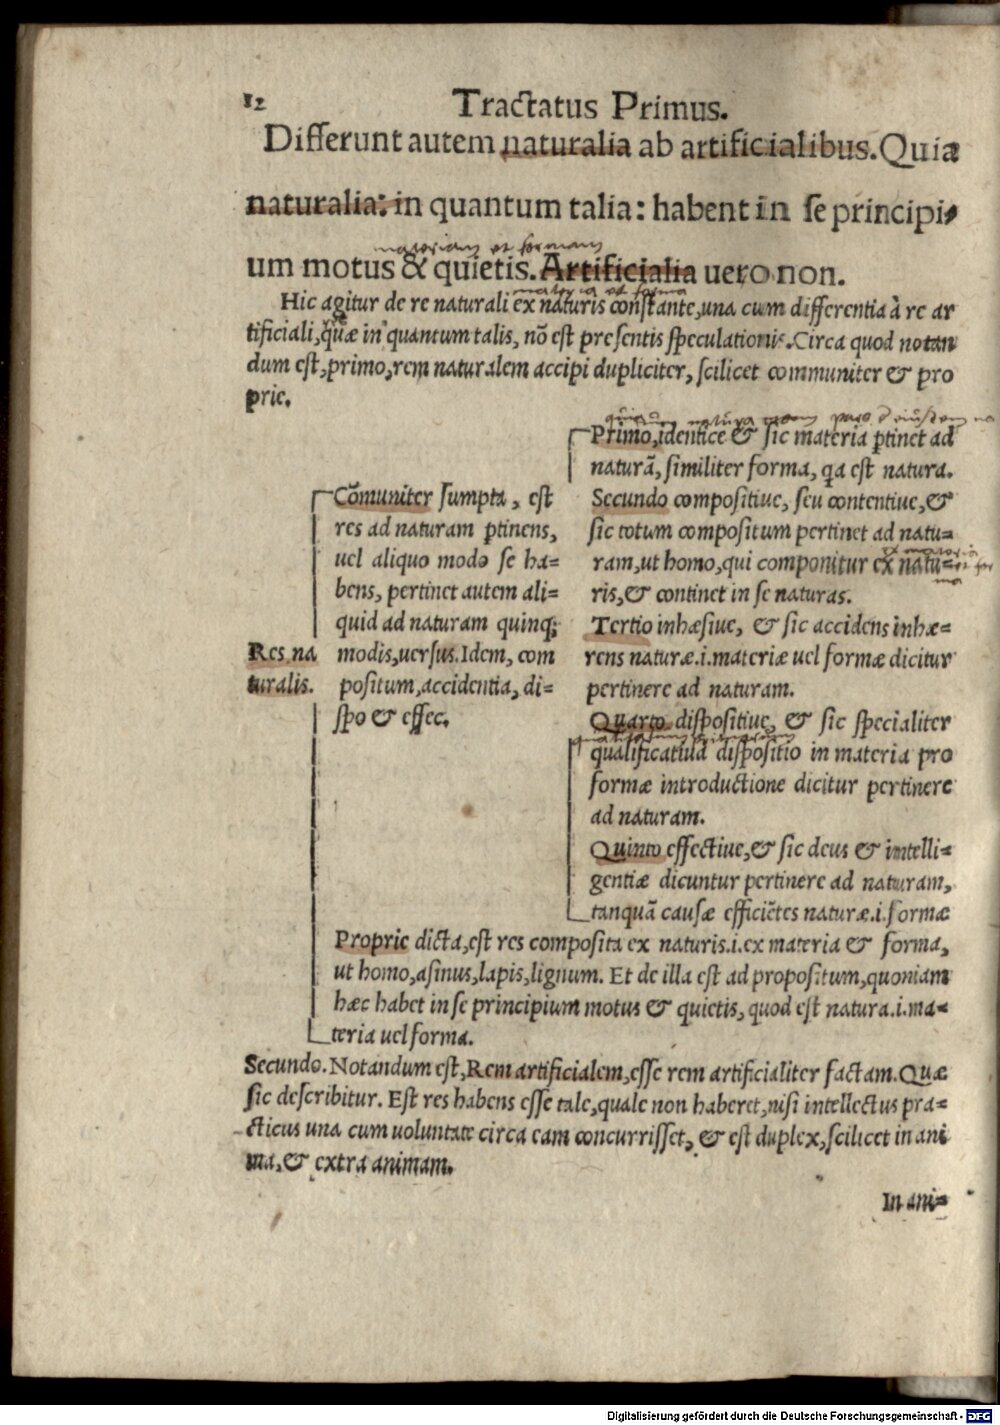 12
Tractatus Primus.
Differunt autem naturalia ab artificialibus. Quia
naturalia: in quantum talia: habent in se principi-
materiam et formam
um motus & quietis. Artificialia uero non.
materia et forma
Hic agitur de re naturali ex naturis constante, una cum differentia à re ar
tificiali, quæ in quantum talis, nō est presentis speculationis. Circa quod notan
dum est, primo, rem naturalem accipi dupliciter, scilicet communiter & pro
prie.
Res na
turalis.
Cōmuniter sumpta, est
res ad naturam ptinens,
uel aliquo modo se ha-
bens, pertinet autem ali-
quid ad naturam quinq;
modis, uersus. Idem, com
positum, accidentia, di-
spo & effec.
natura
Primo, identice & sic materia ptinet ad
naturā, similiter forma, qa est natura.
Secundo compositiue, seu contentiue, &
sic totum compositum pertinet ad natu-
ex materia
ram, ut homo, qui componitur ex natu-
et for
ma
ris, & continet in se naturas.
Tertio inhæsiue, & sic accidens inhæ-
rens naturæ .i. materiæ uel formæ dicitur
pertinere ad naturam.
Quarto dispositiue, & sic specialiter
qualificatiua dispositio in materia pro
formæ introductione dicitur pertinere
ad naturam.
Quinto effectiue, & sic deus & intelli-
gentiæ dicuntur pertinere ad naturam,
tanquā causæ efficiētes naturæ .i. formæ
Proprie dicta, est res composita ex naturis .i. ex materia & forma,
ut homo, asinus, lapis, lignum. Et de illa est ad propositum, quoniam
hæc habet in se principium motus & quietis, quod est natura .i. ma-
teria uel forma.
Secundo. Notandum est, Rem artificialem, esse rem artificialiter factam. Quæ
sic describitur. Est res habens esse tale, quale non haberet, nisi intellectus pra-
cticus una cum uoluntate circa eam concurrisset, & est duplex, scilicet in ani
ma, & extra animam.
In ani-
Digitalisierung gefördert durch die Deutsche Forschungsgemeinschaft - DFG